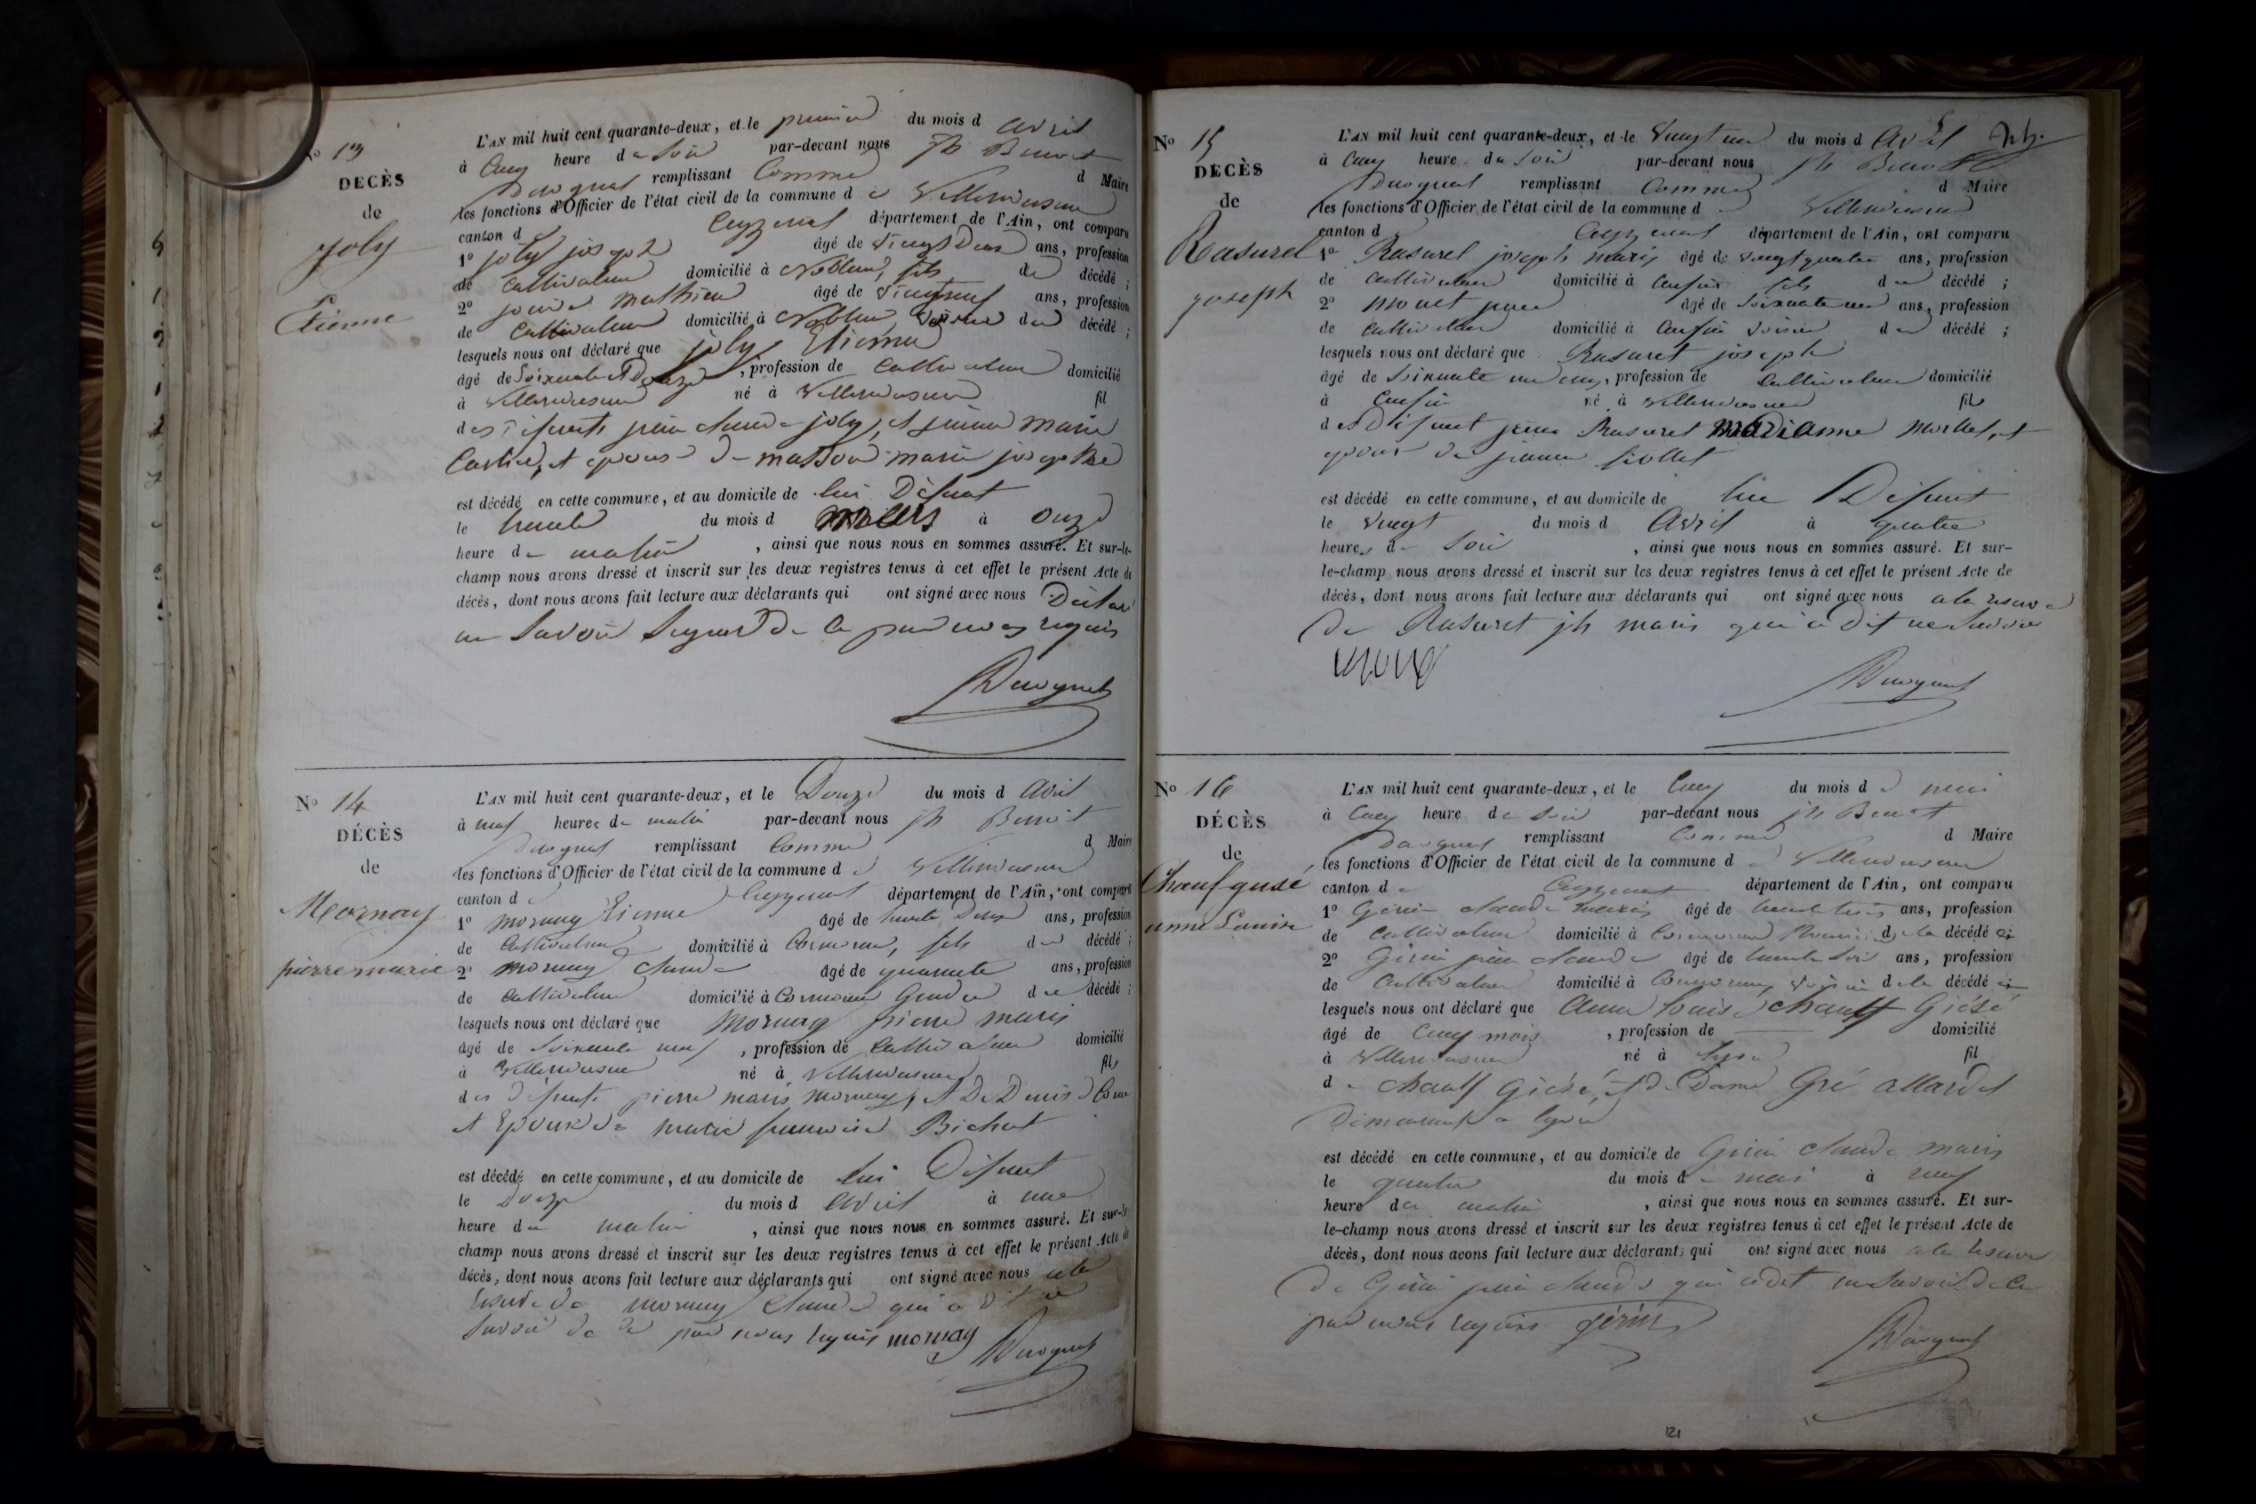 No 13
DECÈS
de
joly
Etienne
L'AN mil huit cent quarante-deux, et le premier du mois d avril
à Cinq heure du Soir par-devant nous jh Benoit
Ducognat remplissant Comme d Maire
les fonctions d'Officier de l'état civil de la commune d e Villereversure
canton d e Ceyzeriat département de l'Ain, ont comparu
1º joly joseph âgé de ans, profession
de Cultivateur domicilié à Noblens, fils du décédé ;
2º Mathieu âgé de vingtneuf ans, profession
de Cultivateur domicilié à Noblens Voisin du décédé ;
lesquels nous ont déclaré que joly Etienne
âgé de Soixante et Douze, profession de Cultivateur domicilié
à Villereversure né à Villereversure fil
des Défunts joly, et Marie
et époux de marie josephte
est décédé en cette commune, et au domicile de lui Défunt
le trente du mois d mars à onze
heure du matin, ainsi que nous nous en sommes assuré. Et sur-le-
champ nous avons dressé et inscrit sur les deux registres tenus à cet effet le présent Acte de
décès, dont nous avons fait lecture aux déclarants qui ont signé avec nous
ne Savoir Signer de ce par nous requis
Ducognat
No 14
DÉCÈS
de
Mornay
pierre marie
L'AN mil huit cent quarante-deux, et le Douze du mois d avril
à neuf heures du matin par-devant nous jh Benoit
Ducognat remplissant Comme d Maire
les fonctions d'Officier de l'état civil de la commune d e Villereversure
canton d e Ceyzeriat département de l'Ain, ont comparu
1º mornay Etienne âgé de trente Deux ans, profession
de Cultivateur domicilié à Cormoreu, fils du décédé ;
2º mornay Claude âgé de quarante ans, profession
de Cultivateur domicilié à Cormoreu Gendre du décédé ;
lesquels nous ont déclaré que Mornay pierre marie
âgé de Soixante neuf, profession de Cultivateur domicilié
à Villereversure né à Villereversure fils
des Défunts pierre marie mornay, et De Denise
et Epoux de marie françoise Bichat
est décédé en cette commune, et au domicile de lui Défunt
le Douze du mois d avril à une
heure du matin, ainsi que nous nous en sommes assuré. Et sur-le-
champ nous avons dressé et inscrit sur les deux registres tenus à cet effet le présent Acte de
décès, dont nous avons fait lecture aux déclarants qui ont signé avec nous a la
reserve de mornay Claude qui a Dit ne
Savoir de ce par nous requis mornay
Ducognat
No 15
DECÈS
de
Rasurel
joseph
L'AN mil huit cent quarante-deux, et le Vingt un du mois d Avril
à Cinq heure du Soir par-devant nous jh Benoit
Ducognat remplissant Comme d Maire
les fonctions d'Officier de l'état civil de la commune d e Villereversure
canton d Ceyzeriat département de l'Ain, ont comparu
1º Rasurel joseph marie âgé de vingtquatre ans, profession
de Cultivateur domicilié à fils du décédé ;
2º âgé de Soixante un ans, profession
de Cultivateur domicilié à voisin du décédé ;
lesquels nous ont déclaré que Rasurel joseph
âgé de Soixante un ans, profession de Cultivateur domicilié
à né à Villereversure fils
des Défunt Rasurel marianne et
époux de
est décédé en cette commune, et au domicile de lui Défunt
le vingt du mois d Avril à quatre
heures du Soir, ainsi que nous nous en sommes assuré. Et sur-
le-champ nous avons dressé et inscrit sur les deux registres tenus à cet effet le présent Acte de
décès, dont nous avons fait lecture aux déclarants qui ont signé avec nous a la reserve
De Rasurel jh marie qui a Dit ne Savoir
Ducognat
No 16
DÉCÈS
de
Chaufgiésé
anne Louise
L'AN mil huit cent quarante-deux, et le Cinq du mois d e mai
à Cinq heure du Soir par-devant nous jh Benoit
Ducognat remplissant Comme d Maire
les fonctions d'Officier de l'état civil de la commune d e Villereversure
canton d e Ceyzeriat département de l'Ain, ont comparu
1º Gérin Claude marie âgé de trente trois ans, profession
de Cultivateur domicilié à Cormoreu de la décédé e
2º Gérin Claude âgé de trente Six ans, profession
de Cultivateur domicilié à Cormoreu voisin de la décédé e
lesquels nous ont déclaré que Anne Louise Chauff Giésé
âgé de Cinq mois, profession de — domicilié
à Villereversure né à Lyon fil
d e Chauff Giésé, et de Allardet
Demeurant a Lyon
est décédé en cette commune, et au domicile de Gérin Claude marie
le quatre du mois d e mai à neuf
heure du matin, ainsi que nous nous en sommes assuré. Et sur-
le-champ nous avons dressé et inscrit sur les deux registres tenus à cet effet le présent Acte de
décès, dont nous avons fait lecture aux déclarants qui ont signé avec nous a la reserve
De Gérin Claude qui a dit ne Savoir de ce
par nous requis gérin
Ducognat
121